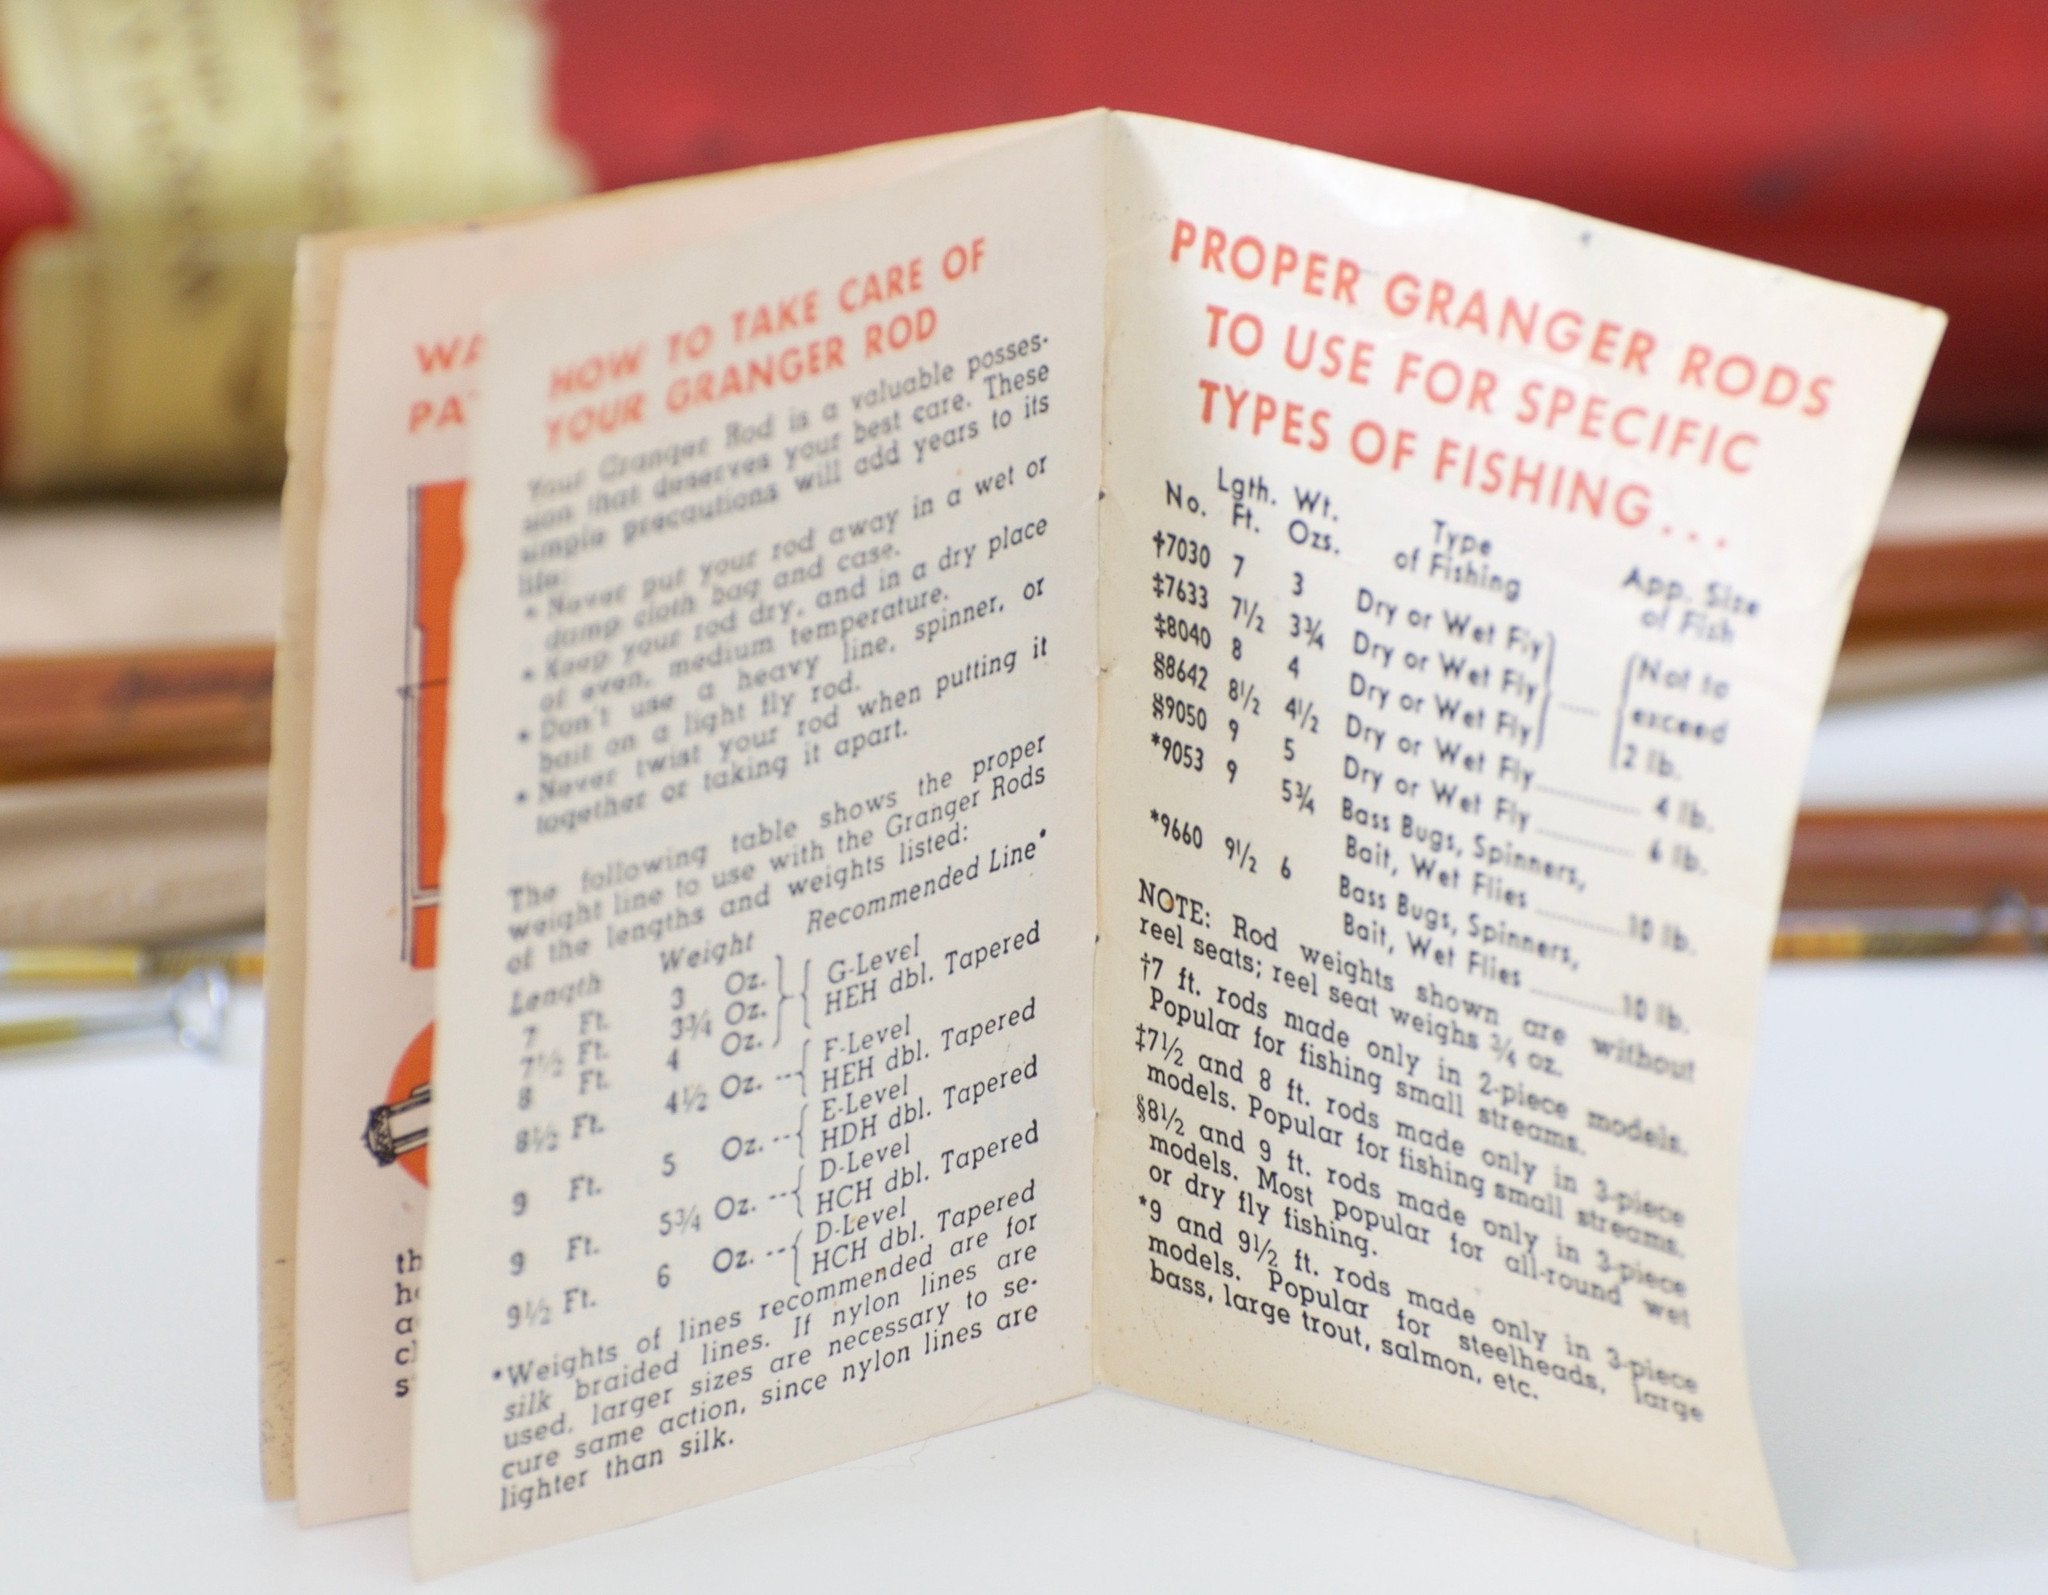 WA
PA
th
HOW TO TAKE CARE OF
YOUR GRANGER ROD
Your Granger Rod is a valuable posses-
sion that deserves your best care. These
simple precautions will add years to its
life:
• Never put your rod away in a wet or
damp cloth bag and case.
• Keep your rod dry, and in a dry place
of even, medium temperature.
• Don't use a heavy line, spinner, or
bait on a light fly rod.
• Never twist your rod when putting it
together or taking it apart.
The following table shows the proper
weight line to use with the Granger Rods
of the lengths and weights listed:
Length Weight Recommended Line*
7 Ft. 3 Oz.
7½ Ft. 3¾ Oz.
8 Ft. 4 Oz.
G-Level
HEH dbl. Tapered
8½ Ft. 4½ Oz. --- F-Level
HEH dbl. Tapered
9 Ft. 5 Oz. --- E-Level
HDH dbl. Tapered
9 Ft. 5¾ Oz. --- D-Level
HCH dbl. Tapered
9½ Ft. 6 Oz. --- D-Level
HCH dbl. Tapered
*Weights of lines recommended are for
silk braided lines. If nylon lines are
used, larger sizes are necessary to se-
cure same action, since nylon lines are
lighter than silk.
PROPER GRANGER RODS
TO USE FOR SPECIFIC
TYPES OF FISHING...
No. Lgth. Ft. Wt. Ozs. Type of Fishing App. Size of Fish
†7030 7 3 Dry or Wet Fly
‡7633 7½ 3¾ Dry or Wet Fly
‡8040 8 4 Dry or Wet Fly
Not to
exceed
2 lb.
§8642 8½ 4½ Dry or Wet Fly............ 4 lb.
§9050 9 5 Dry or Wet Fly............ 6 lb.
*9053 9 5¾ Bass Bugs, Spinners,
Bait, Wet Flies............10 lb.
*9660 9½ 6 Bass Bugs, Spinners,
Bait, Wet Flies............10 lb.
NOTE: Rod weights shown are without
reel seats; reel seat weighs ¾ oz.
†7 ft. rods made only in 2-piece models.
Popular for fishing small streams.
‡7½ and 8 ft. rods made only in 3-piece
models. Popular for fishing small streams.
§8½ and 9 ft. rods made only in 3-piece
models. Most popular for all-round wet
or dry fly fishing.
*9 and 9½ ft. rods made only in 3-piece
models. Popular for steelheads, large
bass, large trout, salmon, etc.